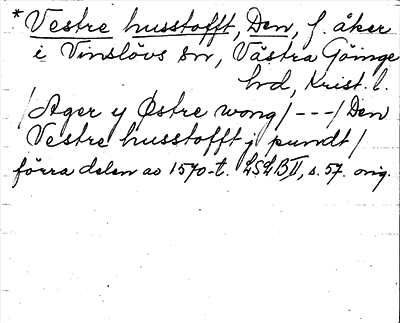 * Vestre husstofft, Den, f. åker
i Vinslövs sn, Västra Göinge
hd, Krist. l.
/Ager y Østre wong/ --- / Den
Vestre husstofft j pundt/
förra delen av 1570-t. LSLB II, s. 57. orig.